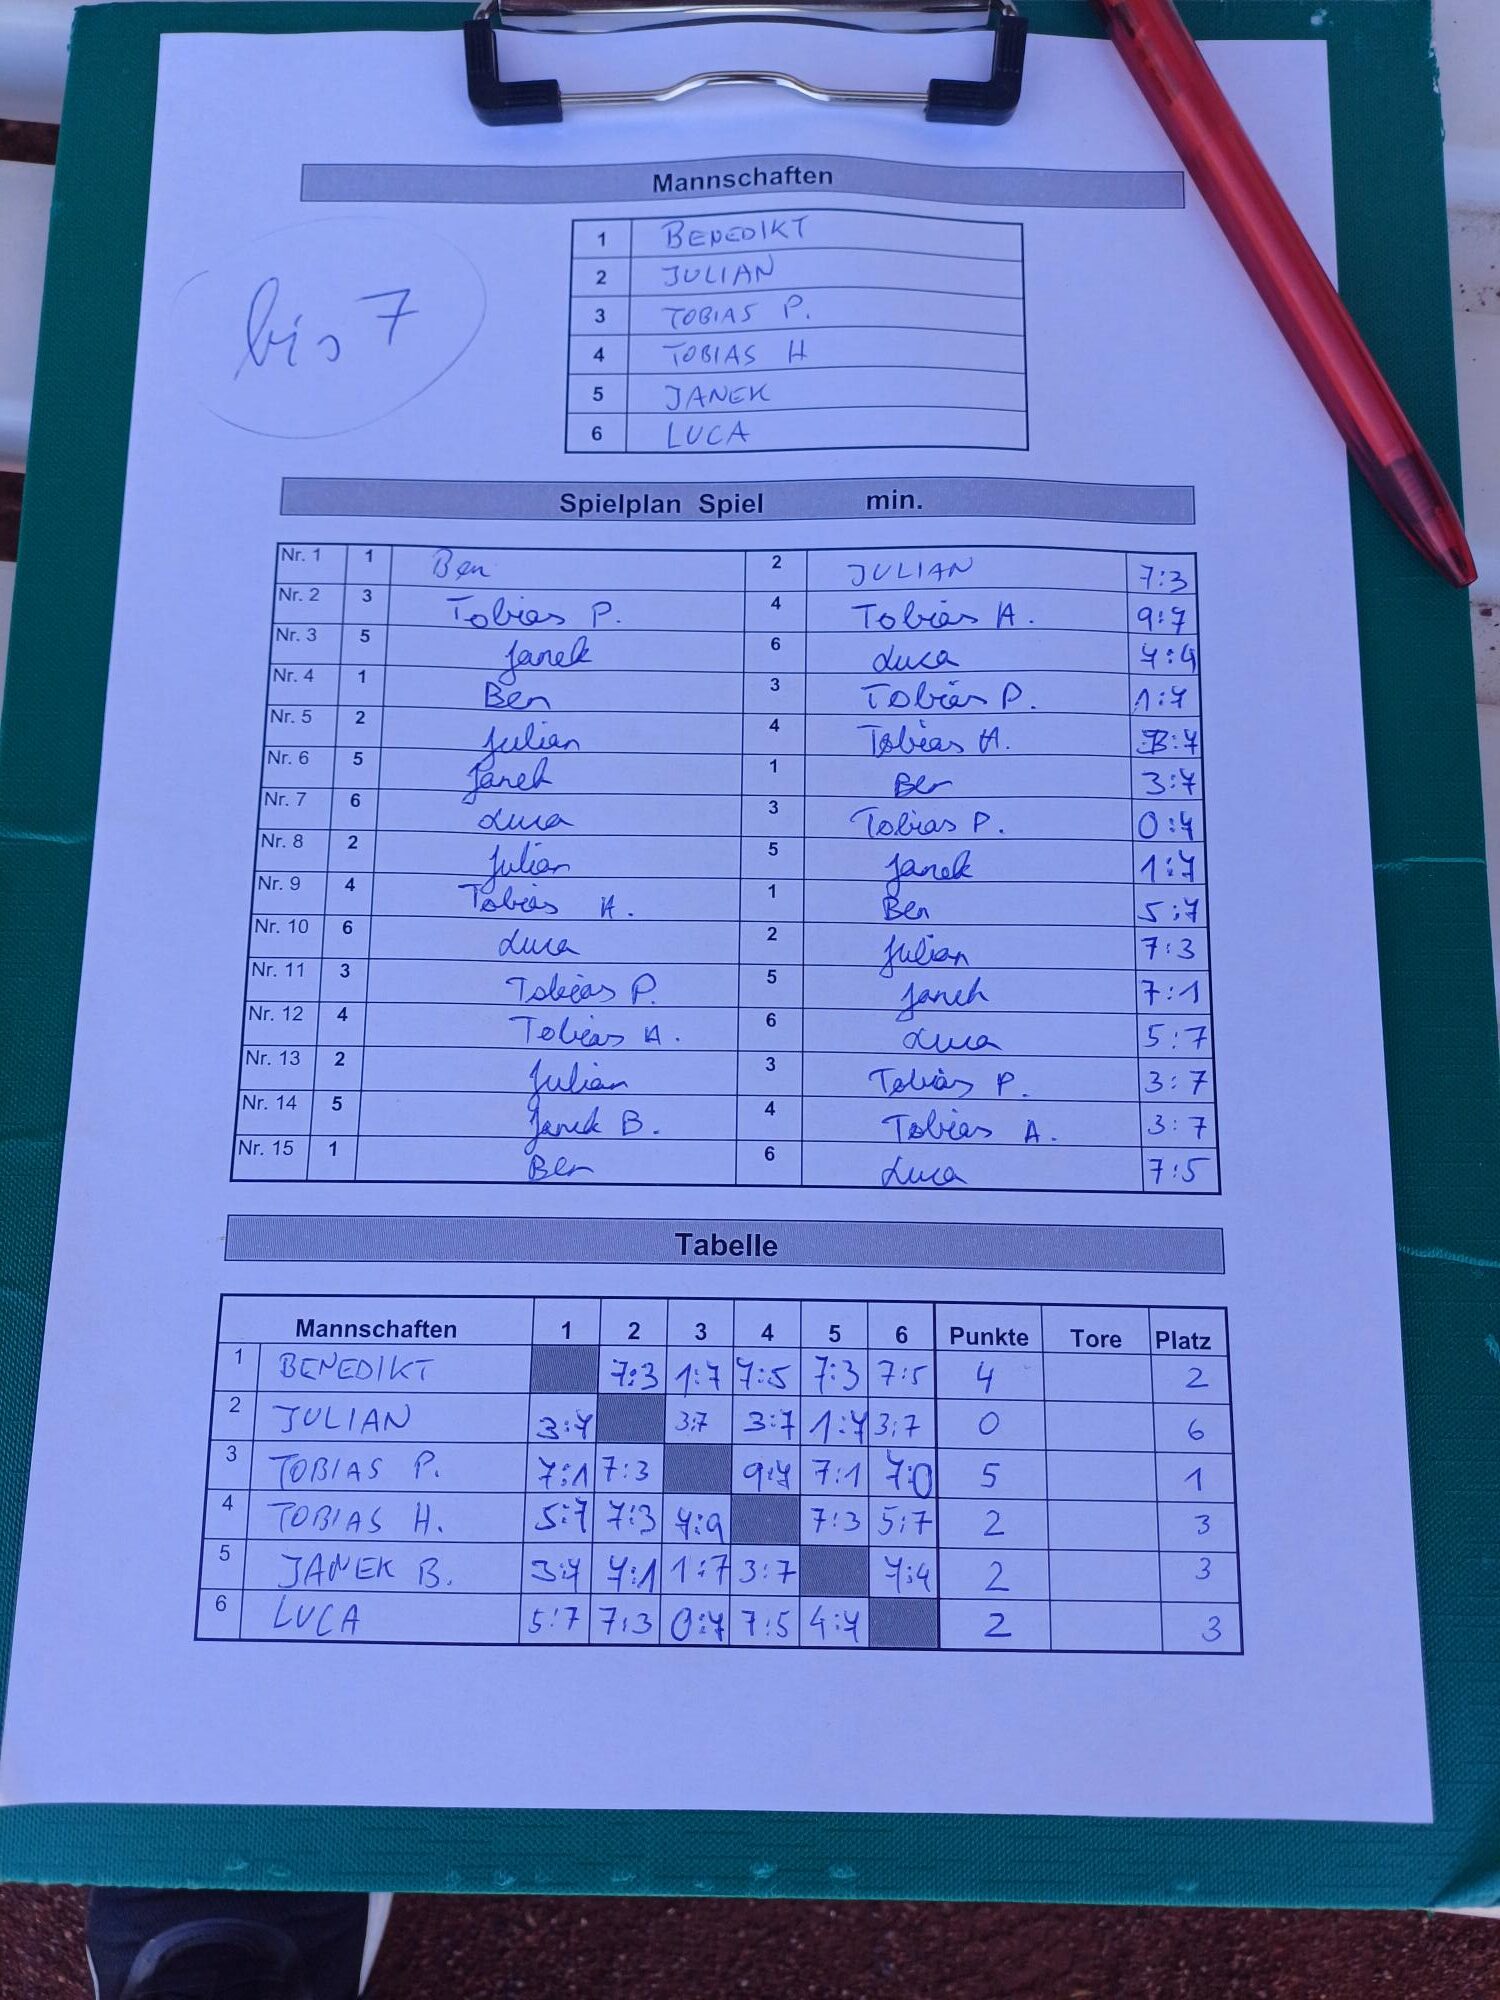 Mannschaften
1 BENEDIKT
2 JULIAN
bis 7
3 TOBIAS P.
4 TOBIAS H
5 JANEK
6 LUCA
Spielplan Spiel min.
Nr. 1 1 Ben 2 JULIAN 7:3
Nr. 2 3 Tobias P. 4 Tobias H. 9:7
Nr. 3 5 Janek 6 Luca 7:4
Nr. 4 1 Ben 3 Tobias P. 1:7
Nr. 5 2 Julian 4 Tobias H. 3:7
Nr. 6 5 Janek 1 Ben 3:7
Nr. 7 6 Luca 3 Tobias P. 0:7
Nr. 8 2 Julian 5 Janek 1:7
Nr. 9 4 Tobias H. 1 Ben 5:7
Nr. 10 6 Luca 2 Julian 7:3
Nr. 11 3 Tobias P. 5 Janek 7:1
Nr. 12 4 Tobias H. 6 Luca 5:7
Nr. 13 2 Julian 3 Tobias P. 3:7
Nr. 14 5 Janek B. 4 Tobias H. 3:7
Nr. 15 1 Ben 6 Luca 7:5
Tabelle
Mannschaften 1 2 3 4 5 6 Punkte Tore Platz
1 BENEDIKT 7:3 1:7 7:5 7:3 7:5 4 2
2 JULIAN 3:7 3:7 3:7 1:7 3:7 0 6
3 TOBIAS P. 7:1 7:3 9:7 7:1 7:0 5 1
4 TOBIAS H. 5:7 7:3 7:9 7:3 5:7 2 3
5 JANEK B. 3:7 7:1 1:7 3:7 7:4 2 3
6 LUCA 5:7 7:3 0:7 7:5 4:7 2 3